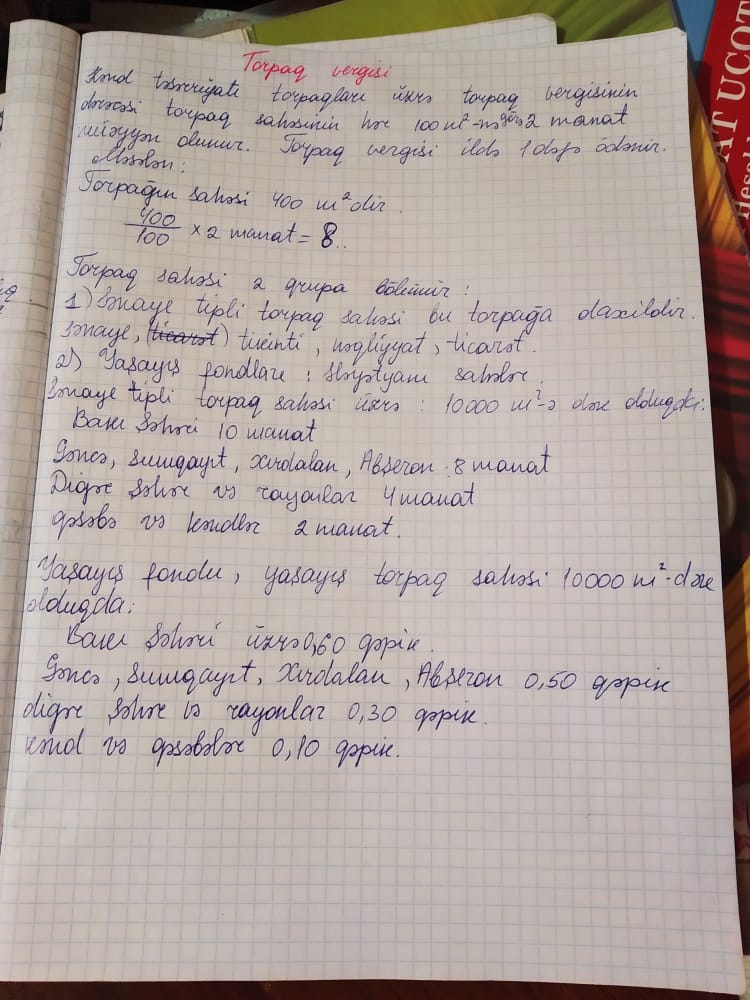 Torpaq vergisi
Kənd təsərriyatı torpaqları üzrə torpaq vergisinin
dərəcəsi torpaq sahəsinin hər 100 m²-nə görə 2 manat
müəyyən olunur. Torpaq vergisi ildə 1 dəfə ödənir.
Məsələn:
Torpağın sahəsi 400 m² dir.
400/100 × 2 manat = 8..
Torpaq sahəsi 2 grupa bölünür:
1) Sənaye tipli torpaq sahəsi bu torpağa daxildir.
sənaye, (ticarət) tikinti, nəqliyyat, ticarət.
2) Yaşayış fondları: Həyətyanı sahələr.
Sənaye tipli torpaq sahəsi üzrə: 10000 m²-ə dək olduqda:
Bakı Şəhəri 10 manat
Gəncə, Sumqayıt, Xırdalan, Abşeron: 8 manat
Digər Şəhər və rayonlar 4 manat
qəsəbə və kəndlər 2 manat.
Yaşayış fondu, yaşayış torpaq sahəsi 10000 m²-dək
olduqda:
Bakı Şəhəri üzrə 0,60 qəpik.
Gəncə, Sumqayıt, Xırdalan, Abşeron 0,50 qəpik
digər şəhər və rayonlar 0,30 qəpik.
kənd və qəsəbələr 0,10 qəpik.
AT UCOT
Hesab